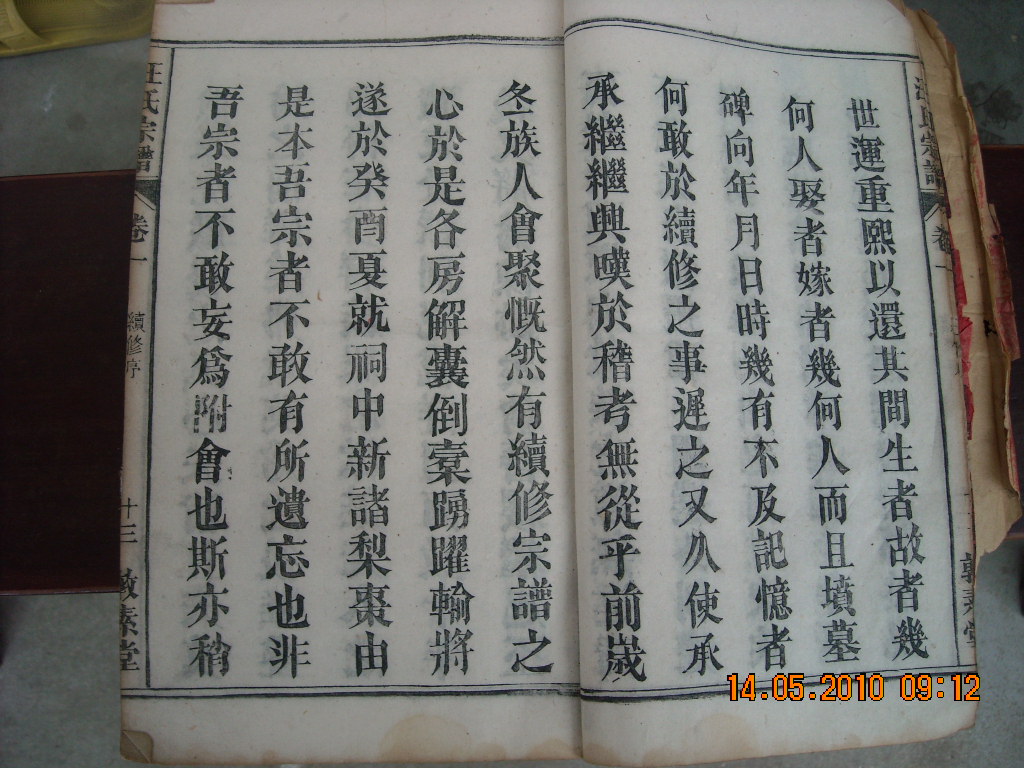 世運重熙以還其間生者故者幾
何人娶者嫁者幾何人而且墳墓
碑向年月日時幾有不及記憶者
何敢於續修之事遲之又久使承
承繼繼興嘆於稽考無從乎前歲
冬族人會聚慨然有續修宗譜之
心於是各房解囊倒橐踴躍輸將
遂於癸酉夏就祠中新諸梨棗由
是本吾宗者不敢有所遺忘也非
吾宗者不敢妄爲附會也斯亦稍
汪氏宗譜
卷一
續修序
十三
敦素堂
14.05.2010 09:12